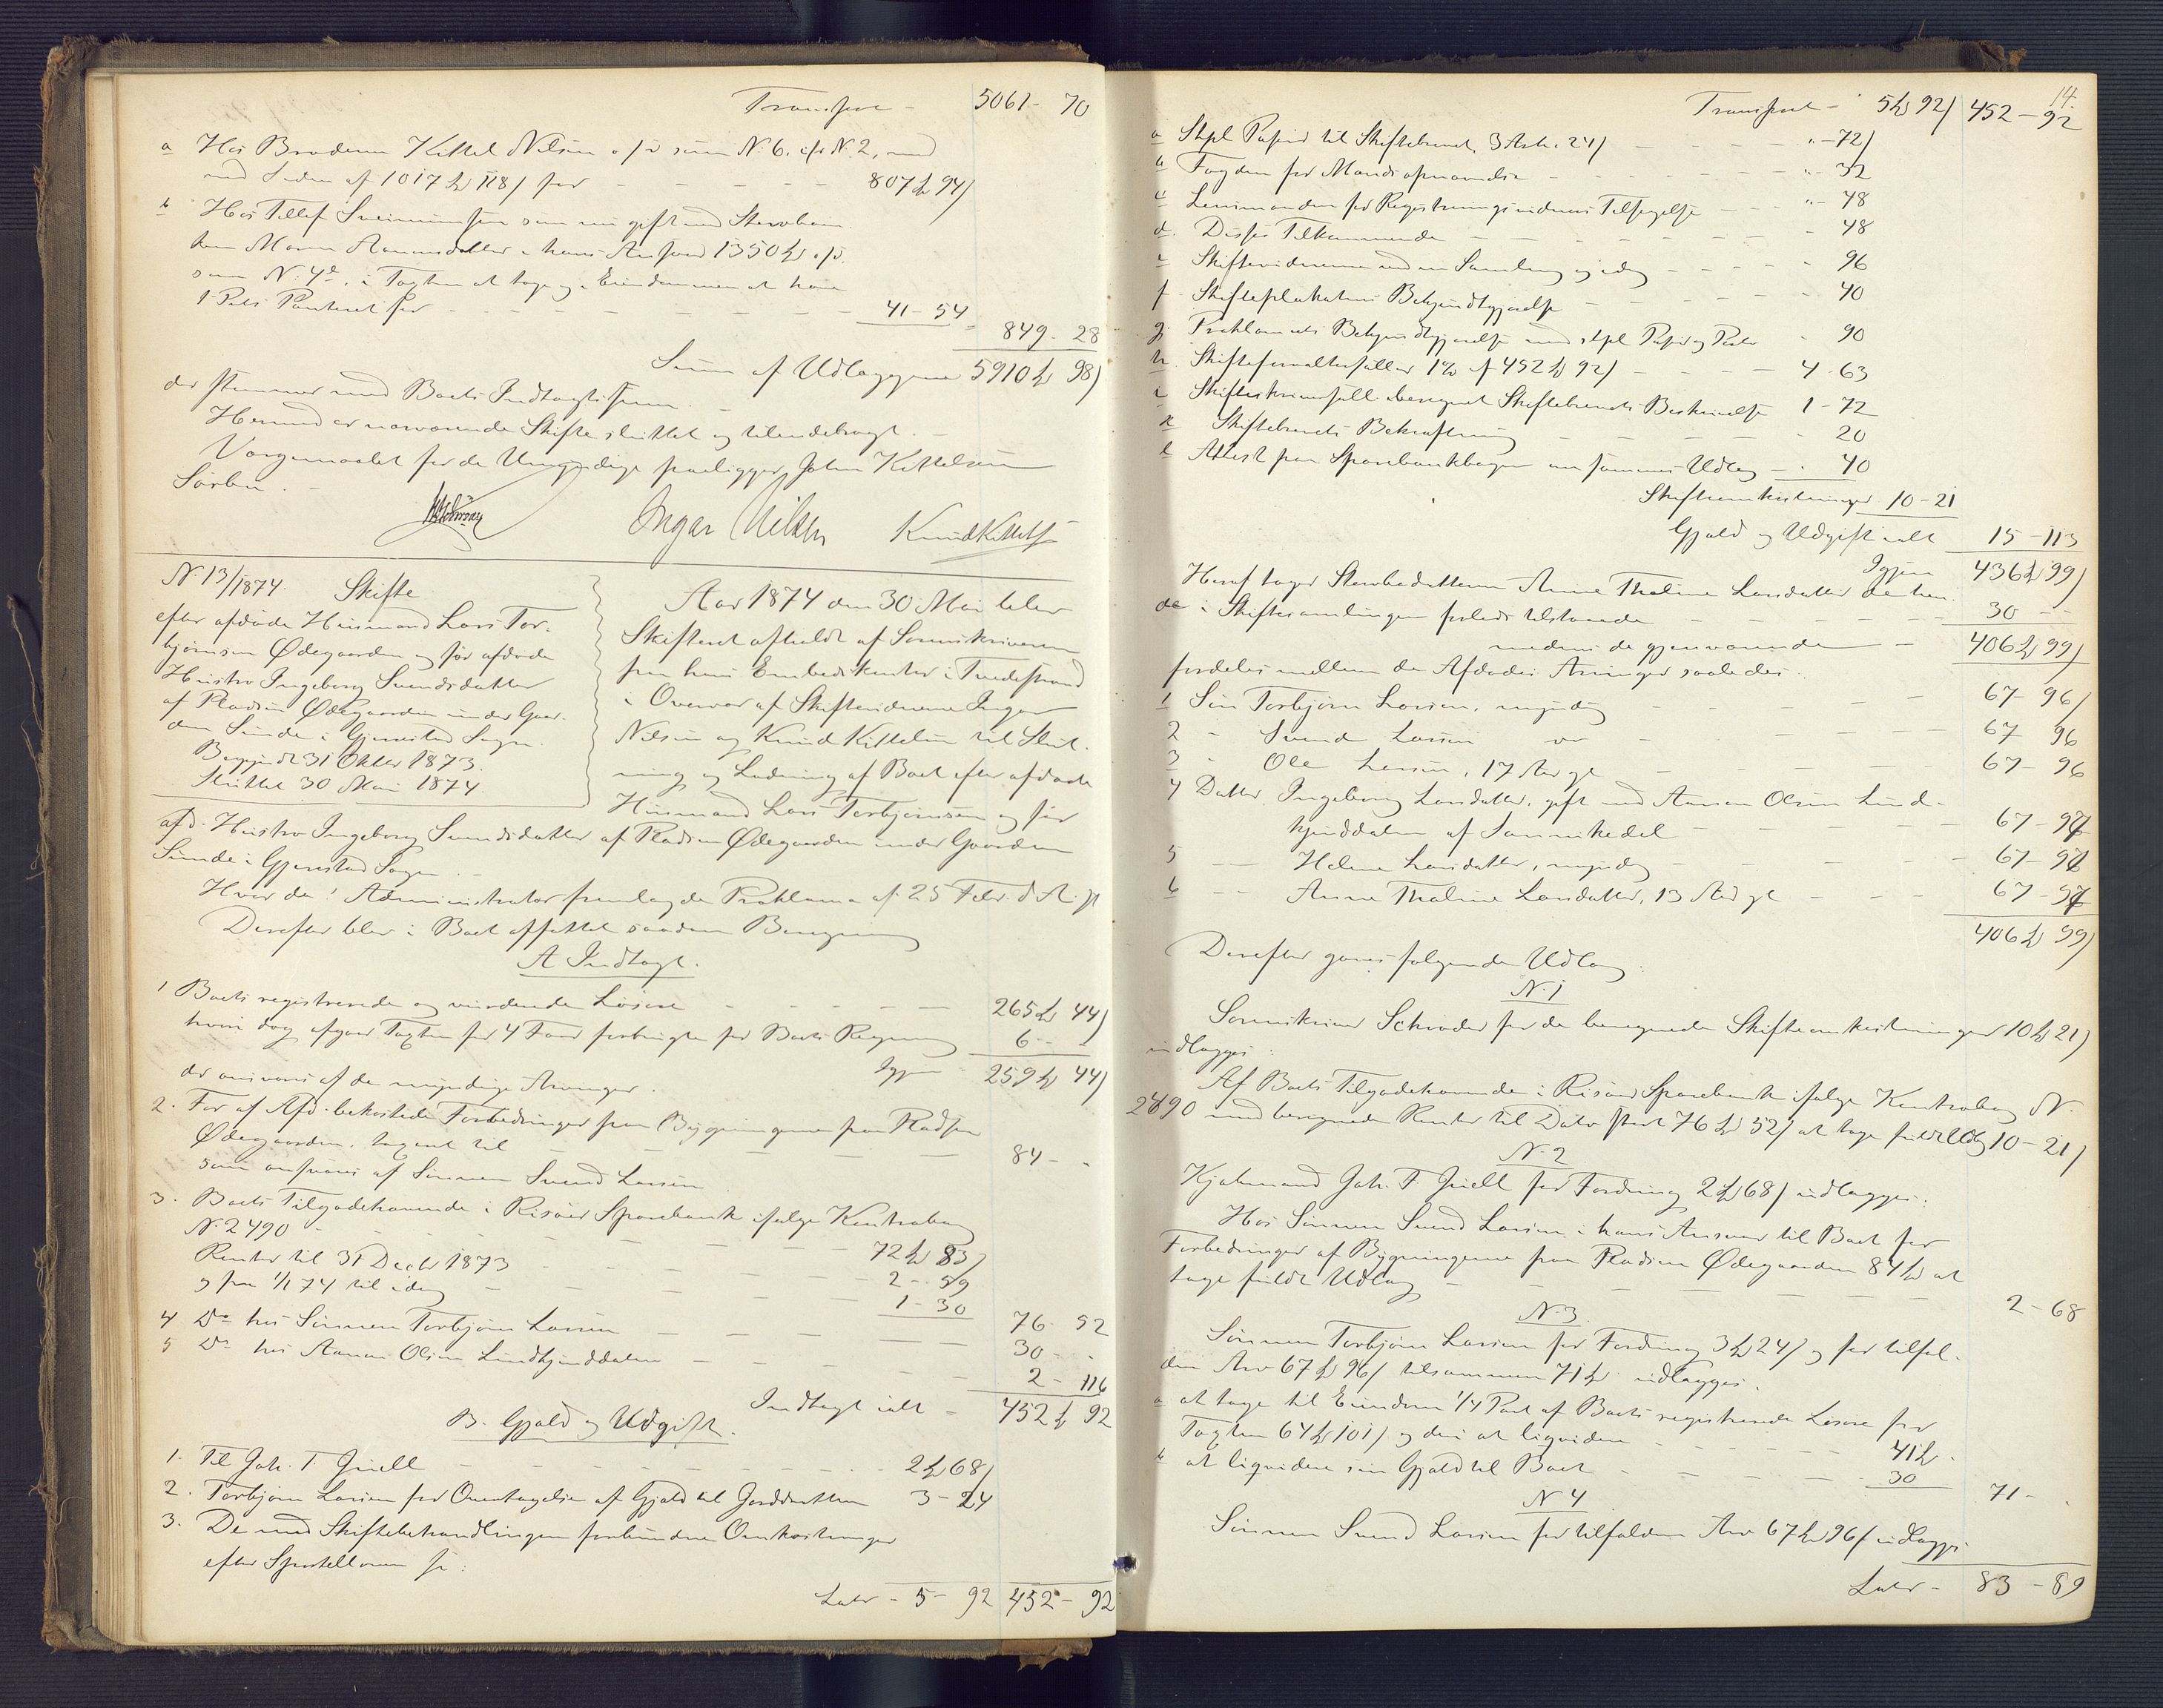 Transport - 5061 - 70
a Hos Broderen Kittel Nilsen o/s som N. 6. cfr N. 2, med
ned Siden af 1017 Sp 118 ſ for - - - 807 Sp 94 ſ
b Hos Tellef Sveinunsen som nu gift med Stervboen-
ken Maren Aanonsdatter i hans Ansvar 1350 Sp o/s.
som N. 4d, i Taxten at tage og i Eiendommen at have
1 Prts Panteret for - - - 41 - 54
849 - 28
Sum af Udlæggene 5910 Sp 98 ſ
der stemmer med Boets Indtægtssum. -
Hermed er nærværende Skifte sluttet og tilendebragt. -
Værgemaalet for de Umyndige paaligger John Kittelsen
Sørbø. -
Ingar Nilsen Knud Kittelsen
N. 13/1874. Skifte
efter afdøde Huusmand Lars Tor-
bjørnsen Ødegaarden og før afdøde
Hustro Ingeborg Svendsdatter
af Pladsen Ødegaarden under Gaar-
den Sunde i Gjerrestad Sogn.
Begyndt 31 Oktbr 1873.
Sluttet 30 Mai 1874
Aar 1874 den 30 Mai blev
Skifteret afholdt af Sorenskriveren
paa hans Embedskontor i Tvedestrand
i Overvær af Skiftevidnerne Ingar
Nilsen og Knud Kittelsen til Slut-
ning og Ludning af Boet efter afdøde
Huusmand Lars Torbjørnsen og før
afd. Hustro Ingeborg Svendsdatter af Pladsen Ødegaarden under Gaarden
Sunde i Gjerrestad Sogn. -
Hvor da: Administrator fremlagde Proklama af 25 Febr. d. A.
Derefter blev i Boet affattet saadan Beregning
A Indtægt.
1 Boets registrerede og vurderede Løsøre - - - 265 Sp 44 ſ
hvori dog afgaar Taxten for 4 Faar forbrugte for Boets Regning 6 - -
Igjen - 259 Sp 44 ſ
der ansvares af de myndige Arvinger.
2. For af Afd. bekostede Forbedringer paa Bygningerne paa Pladsen
Ødegaarden, taxeret til - - - 84 - -
som ansvares af Sønnen Svend Larsen
3. Boets Tilgodehavende i Risøer Sparebank ifølge Kontrabog
N. 2490 - - - 72 Sp 83 ſ
Renter til 31 Decbr 1873 - - - 2 - 59
og fra 1/1 74 til idag - - - 1 - 30
76 - 52
4 Do hos Sønnen Torbjørn Larsen - - - 30 - -
5 Do hos Aanon Olsen Lindkjenddalen - - - 2 - 116
Indtægt ialt - 452 Sp 92
B. Gjæld og Udgift.
1. Til Joh. T. Juell - - - 2 Sp 68 ſ
2. Torbjørn Larsen for Overtagelse af Gjæld til Jorddrotten 3 - 24
3. De med Skiftebehandlingen forbundne Omkostninger
efter Sportelloven ſ:
Latr - 5 - 92 452 - 92
14.
Transport - 5 Sp 92 ſ 452 - 92
a Stpl Papir til Skiftebrevet, 3 Ark à 24 ſ - - - 72 ſ
b Fogden for Mandsopnævnelse - - - 32
c Lensmanden for Registreringsvidners Tilsigelse - - - 48
d. Disses Tilkommende - - - 48
e Skiftevidnerne ved en Samling og idag - - - 96
f Skifteplakatens Bekjendtgjørelse - - - 40
g. Proklamets Bekjendtgjørelse med stpl Papir og Porto - 90
h. Skifteforvaltersallær 1% af 452 Sp 92 ſ - - - 4 - 63
i Skifteskriversallær beregnet Skiftebrevets Beskrivelse 1 - 72
k Skiftebrevets Bekræftning - - - 20
l Attest paa Sparebankbogen om sammes Udlæg - - 40
Skifteomkostninger 10 - 21
Gjæld og Udgift ialt 15 - 113
Igjen 436 Sp 99 ſ
Heraf tager Stervbodatteren Anne Thaline Larsdatter de hen-
de i Skiftesamlingen forlods tilstaaede - - - 30 - -
medens de gjenværende - 406 Sp 99 ſ
fordeles mellem de Afdødes Arvinger saaledes:
1 Søn Torbjørn Larsen, myndig - - - 67 - 96 ſ
2 - Svend Larsen do - - - 67 96
3 - Ole Larsen, 17 Aar gl - - - 67 - 96
4 Datter Ingeborg Larsdatter, gift med Aanon Olsen Lind-
kjenddalen af Sannikedal - - - 67 - 97
5 - - Helene Larsdatter, myndig - - - 67 - 97
6 - - Anne Thaline Larsdatter, 13 Aar gl - - - 67 - 97
406 Sp 99 ſ
Derefter gives følgende Udlæg:
N. 1
Sorenskriver Schrøder for de beregnede Skifteomkostninger 10 Sp 21 ſ
udlægges:
Af Boets Tilgodehavende i Risøer Sparebank ifølge Kontrabog N.
2490 med beregnede Renter til Dato stort 76 Sp 52 ſ at tage fuldt Udlæg 10 - 21 ſ
N. 2
Kjøbmand Joh. T. Juell for Fordring 2 Sp 68 ſ udlægges:
Hos Sønnen Svend Larsen i hans Ansvar til Boet for
Forbedringer af Bygningerne paa Pladsen Ødegaarden 84 Sp at
tage fuldt Udlæg - - - 2 - 68
N. 3.
Sønnen Torbjørn Larsen for Fordring 3 Sp 24 ſ og for tilfal-
den Arv 67 Sp 96 ſ tilsammen 71 Sp udlægges:
a at tage til Eiendom 1/4 Part af Boets registrerede Løsøre for
Taxten 64 Sp 101 ſ og deri at liqvidere - - - 41 Sp -
b at liqvidere sin Gjæld til Boet - - - 30
71 - -
N 4
Sønnen Svend Larsen for tilfalden Arv 67 Sp 96 ſ udlægges:
Latr - 83 - 89